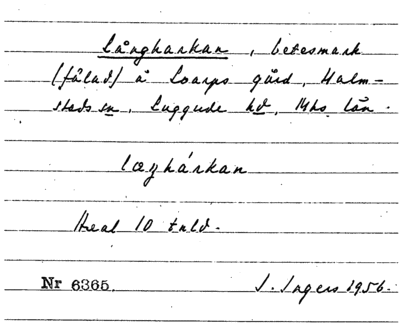 Långharkan, betesmark
(fålad) å Loarps gård, Halm-
stads sn, Luggude hd, Mhs län.
læŋhárkan
Areal 10 tnld.
Nr 6365. I. Ingers 1956.